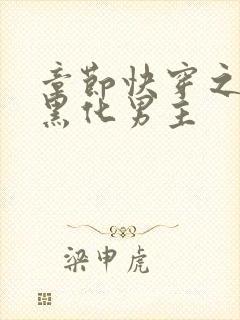 章节快穿之
黑化男主
梁申虎